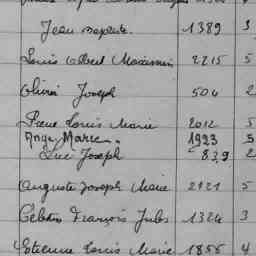 Jean Baptiste. 1389 3
Louis Albert Maximin 2215 5
Olivier Joseph 504 2
Pierre Louis Marie 2012 5
Ange Marie. 1923 5
Luc Joseph 839 2
Auguste Joseph Marie 2121 5
François Jules 1324 3
Etienne Louis Marie 1855 4